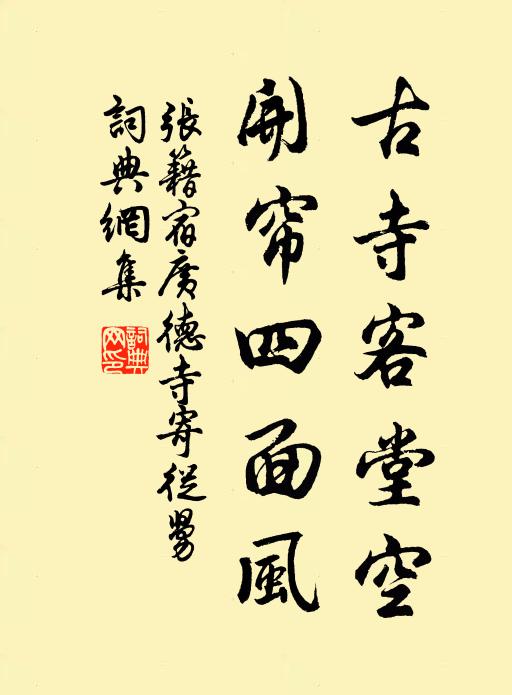 古寺客堂空
開帘四面風
張籍宿廣德寺寄從舅
詞典網集
詞典網印